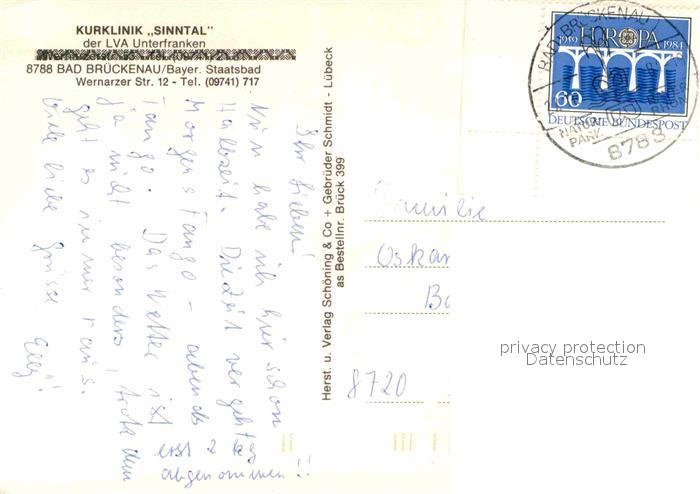 KURKLINIK „SINNTAL"
der LVA Unterfranken
8788 BAD BRÜCKENAU/Bayer. Staatsbad
Wernarzer Str. 12 - Tel. (09741) 717
Ihr Lieben!
Nun habe ich hier schon
Halbzeit. Die Zeit vergeht
Morgens Fango - abends
Tango. Das Wetter ist
ja nicht besonders, trotzdem
geht es immer raus.
Viele liebe Grüsse
Elly!
erst 2
abgenommen!!
Herst. u. Verlag Schöning & Co + Gebrüder Schmidt - Lübeck
as Bestellnr. Brück 399
1959 EUROPA 1984
60
DEUTSCHE BUNDESPOST
BAD BRÜCKENAU
NATUR
PARK
RHÖN
8788
Familie
Oskar
Ba
8720
privacy protection
Datenschutz